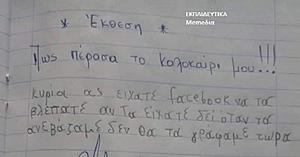 ΕΚΠΑΙΔΕΥΤΙΚΑ
Memedia
* Έκθεση *
Πως πέρασα το καλοκαίρι μου!!!
Κυρία ας είχατε facebook να τα
βλέπατε αν τα είχατε δει όταν τα
ανεβάζαμε δεν θα τα γράφαμε τώρα